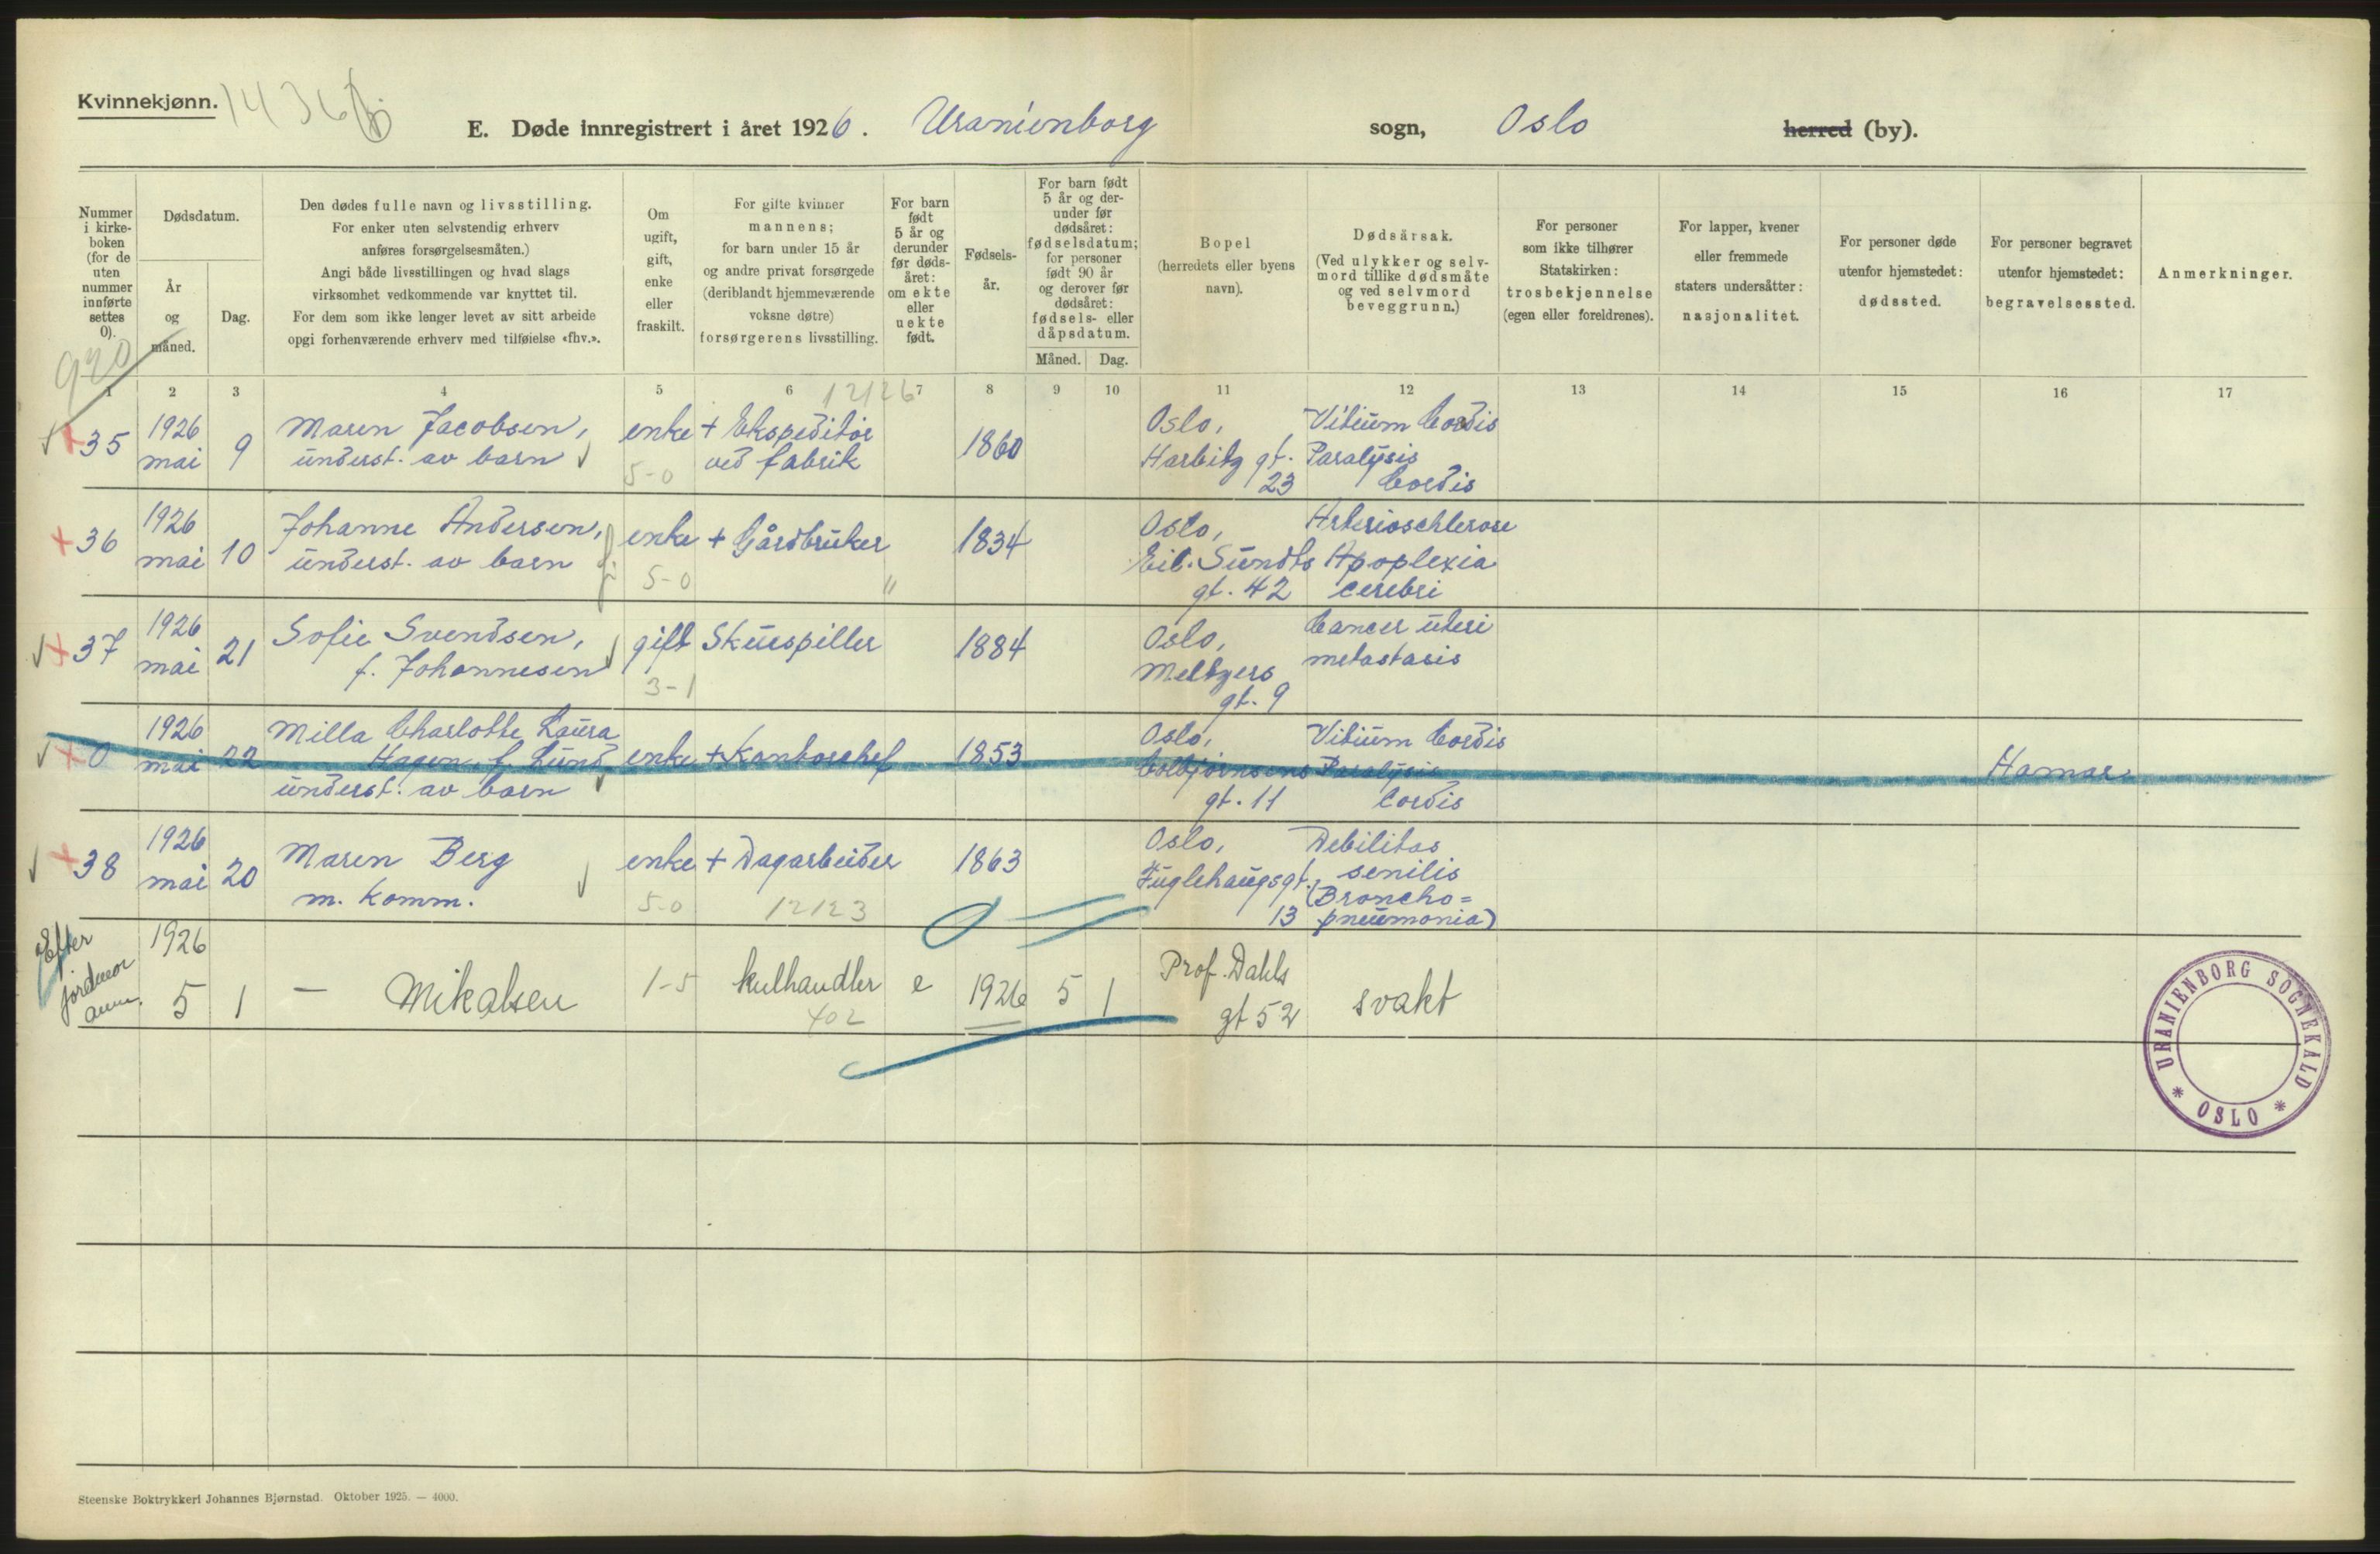 Kvinnekjønn.
E. Døde innregistrert i året 1926. Uranienborg sogn, Oslo herred (by).
Nummer i kirkeboken (for de uten nummer innførte settes 0).
Dødsdatum.
År og måned.
Dag.
Den dødes fulle navn og livsstilling.
For enker uten selvstendig erhverv
anføres forsørgelsesmåten.)
Angi både livsstillingen og hvad slags
virksomhet vedkommende var knyttet til.
For dem som ikke lenger levet av sitt arbeide
opgi forhenværende erhverv med tilføielse «fhv.».
Om ugift, gift, enke eller fraskilt.
For gifte kvinner
mannens;
for barn under 15 år
og andre privat forsørgede
(deriblandt hjemmeværende
voksne døtre)
forsørgerens livsstilling.
For barn født 5 år og derunder før dødsåret: om ekte eller uekte født.
Fødselsår.
For barn født
5 år og derunder før
dødsåret:
fødselsdatum;
for personer
født 90 år
og derover før
dødsåret:
fødsels- eller
dåpsdatum.
Måned. Dag.
Bopel
(herredets eller byens
navn).
Dødsårsak.
(Ved ulykker og selvmord tillike dødsmåte
og ved selvmord
beveggrunn.)
For personer
som ikke tilhører
Statskirken:
trosbekjennelse
(egen eller foreldrenes).
For lapper, kvener
eller fremmede
staters undersåtter:
nasjonalitet.
For personer døde
utenfor hjemstedet:
dødssted.
For personer begravet
utenfor hjemstedet:
begravelsessted.
Anmerkninger.
920
1 2 3 4 5 6 7 8 9 10 11 12 13 14 15 16 17
12126
+ 35 1926 mai 9 Maren Jacobsen, underst. av barn enke 5-0 + Ekspeditør ved fabrik 1860 Oslo, Harbitz gt. 23 Vitium Cordis Paralysis Cordis
+ 36 1926 mai 10 Johanne Andersen, underst. av barn enke 5-0 + Gårdbruker " 1834 Oslo, Eil. Sundts gt. 42 Arterioschlerose Apoplexia cerebri
+ 37 1926 mai 21 Sofie Svendsen, f. Johannesen gift 3-1 Skuespiller 1884 Oslo, Meltzers gt. 9 Cancer uteri metastasis
+ 0 1926 mai 22 Milla Charlotte Laura Hagen, f. Lund underst. av barn enke + Kontorchef 1853 Oslo, Colbjørnsens gt. 11 Vitium Cordis Paralysis Cordis Hamar
+ 38 1926 mai 20 Maren Berg m. Komm. enke 5-0 + Dagarbeider 12123 1863 Oslo, Fuglehaugsgt. 13 Debilitas senilis (Bronchopneumonia)
Efter jordmor anm. 1926 5 1 — Mikalsen 1-5 kulhandler 402 e 1926 5 1 Prof. Dahls gt 52 svakt
URANIENBORG SOGNEKALD * OSLO *
Steenske Boktrykkeri Johannes Bjørnstad. Oktober 1925. — 4000.